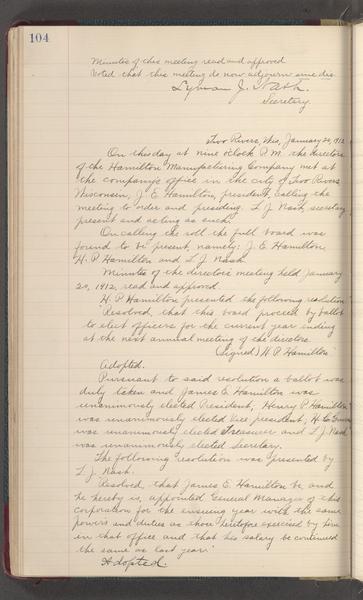 104
Minutes of this meeting read and approved
Voted that this meeting do now adjourn sine die.
Lyman J. Nash,
Secretary.
Two Rivers, Wis, January 20, 1912
On this day at nine o'clock P.M. the directors
of the Hamilton Manufacturing Company met at
the company's office in the city of Two Rivers
Wisconsin, J. E. Hamilton, president, calling the
meeting to order and presiding. L. J. Nash, secretary,
present and acting as such.
On calling the roll the full board was
found to be present, namely: J. E. Hamilton,
H. P. Hamilton and L. J. Nash.
Minutes of the directors meeting held January
20, 1912, read and approved
H. P. Hamilton presented the following resolution:
"Resolved, that this board proceed by ballot
to elect officers for the current year ending
at the next annual meeting of the directors.
(Signed) H. P. Hamilton
Adopted.
Pursuant to said resolution a ballot was
duly taken and James E. Hamilton was
unanimously elected President, Henry P. Hamilton
was unanimously elected Vice president, H. C.
was unanimously elected Treasurer and L. J. Nash
was unanimously elected Secretary.
The following resolution was presented by
L. J. Nash.
"Resolved, that James E. Hamilton be, and
he hereby is, appointed General Manager of this
corporation for the ensuing year with the same
powers and duties as those heretofore exercised by him
in that office and that his salary be continued
the same as last year."
Adopted.